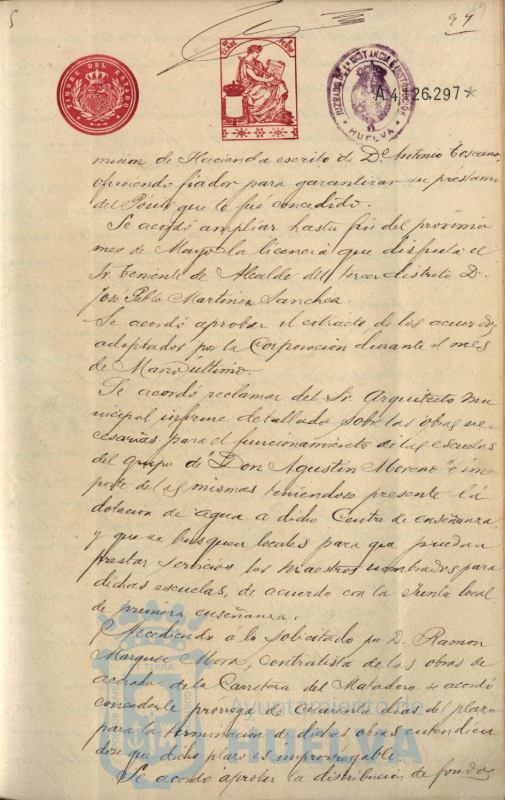 97
TIMBRE DEL ESTADO
CLASE
JUZGADO DE 1ª INSTANCIA E INSTRUCCION
HUELVA
A.4,126,297*
mision de Hacienda escrito de Dn Antonio Toscano,
ofreciendo fiador para garantizar su prestamo
del Pósito que le fué concedido.
Se acordó ampliar hasta fin del proximo
mes de Mayo la licencia que disfruta el
Sr. Teniente de Alcalde del tercer distrito D.
José Pablo Martinez Sanchez.
Se acordó aprobar el extracto de los acuerdos
adoptados por la Corporacion durante el mes
de Marzo último.
Se acordó reclamar del Sr. Arquitecto mu
nicipal informe detallado sobre las obras ne
cesarias para el funcionamiento de las escuelas
del grupo de Don Agustin Moreno é im
porte de las mismas teniendose presente la
dotacion de agua a dicho Centro de enseñanza,
y que se busquen locales para que puedan
prestar servicios los maestros nombrados para
dichas escuelas, de acuerdo con la Junta local
de primera enseñanza.
Accediendo á lo solicitado por D. Ramon
Marquez Mora, contratista de las obras de
acerado de la Carretera del Matadero se acordó
concederle prorroga de cuarenta dias del plazo
para la terminacion de dichas obras entendien
dose que dicho plazo es improrrogable.
Se acordó aprobar la distribucion de fondos
Ayuntamiento de
HUELVA